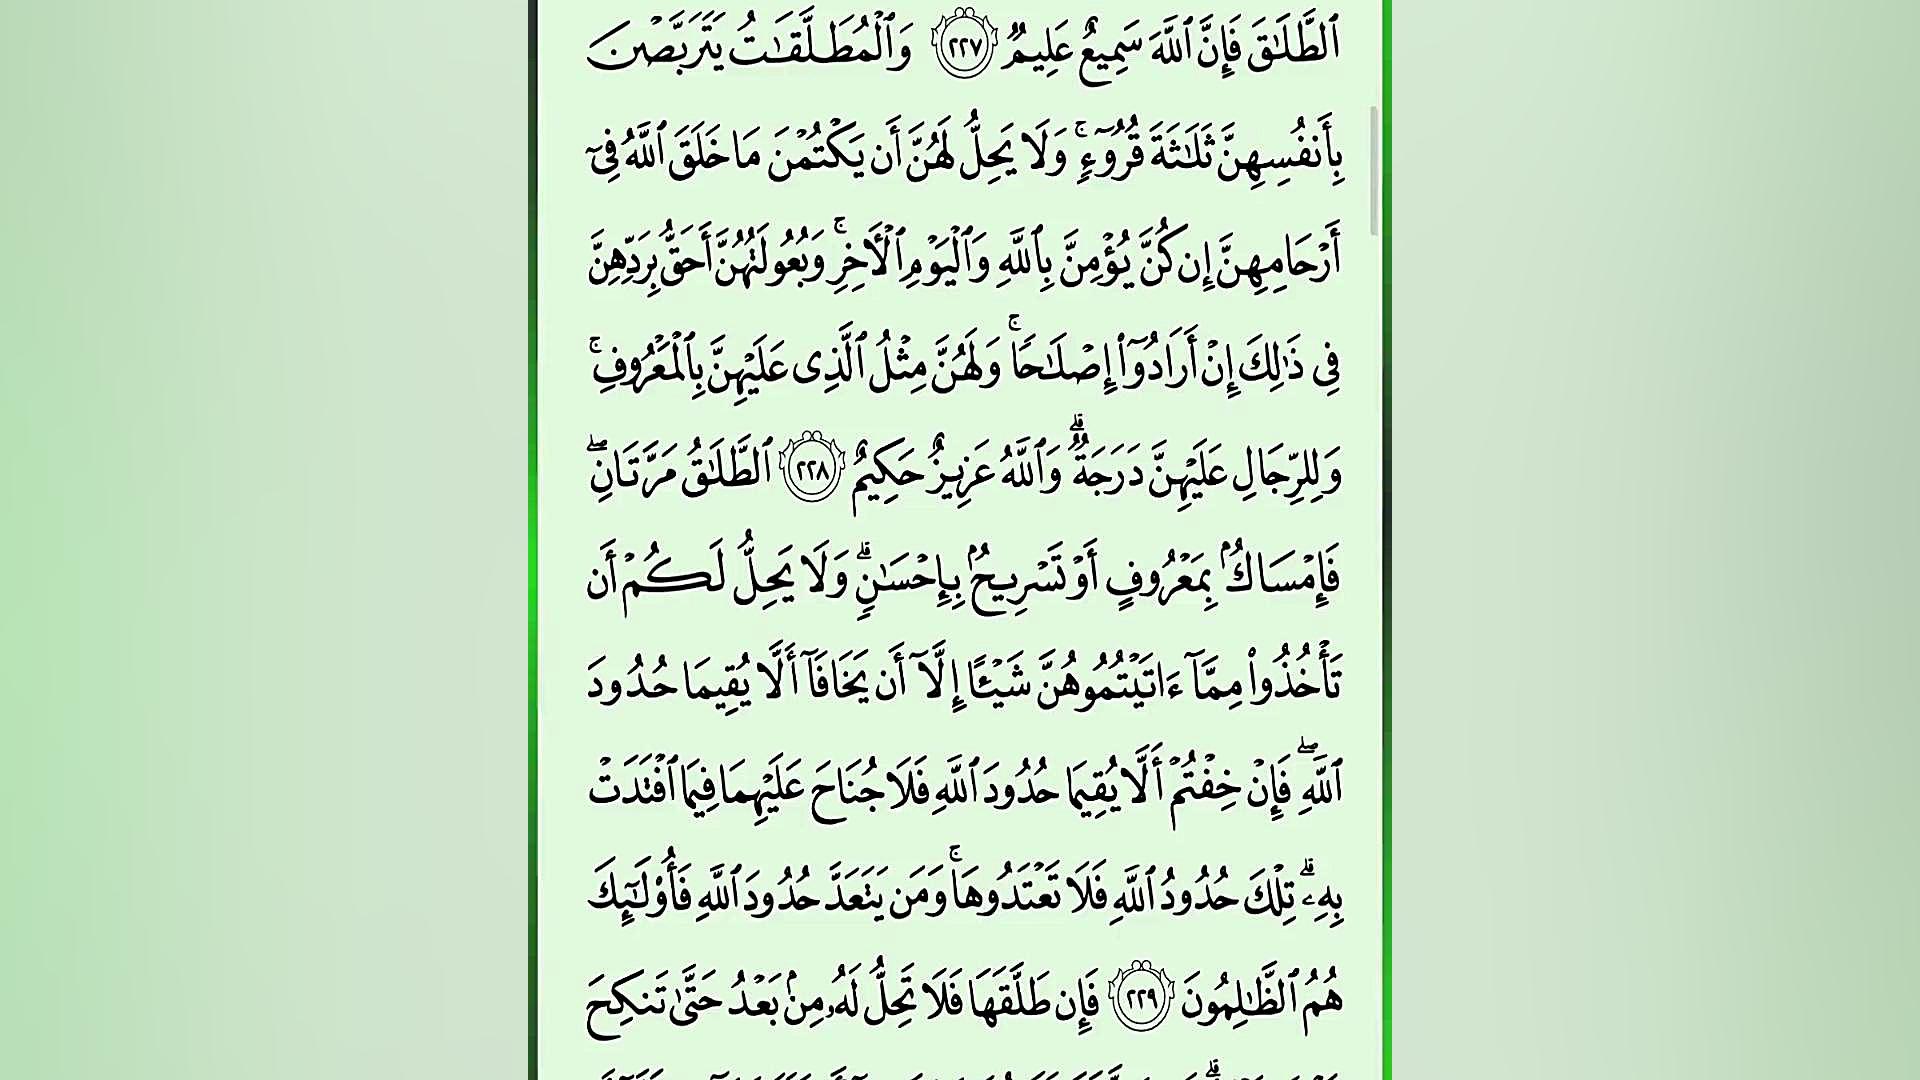 ٱلطَّلَٰقَ فَإِنَّ ٱللَّهَ سَمِيعٌ عَلِيمٌ ٢٢٧ وَٱلْمُطَلَّقَٰتُ يَتَرَبَّصْنَ
بِأَنفُسِهِنَّ ثَلَٰثَةَ قُرُوٓءٍۚ وَلَا يَحِلُّ لَهُنَّ أَن يَكْتُمْنَ مَا خَلَقَ ٱللَّهُ فِىٓ
أَرْحَامِهِنَّ إِن كُنَّ يُؤْمِنَّ بِٱللَّهِ وَٱلْيَوْمِ ٱلْأَخِرِۚ وَبُعُولَتُهُنَّ أَحَقُّ بِرَدِّهِنَّ
فِى ذَٰلِكَ إِنْ أَرَادُوٓا۟ إِصْلَٰحًاۚ وَلَهُنَّ مِثْلُ ٱلَّذِى عَلَيْهِنَّ بِٱلْمَعْرُوفِۚ
وَلِلرِّجَالِ عَلَيْهِنَّ دَرَجَةٌۗ وَٱللَّهُ عَزِيزٌ حَكِيمٌ ٢٢٨ ٱلطَّلَٰقُ مَرَّتَانِۖ
فَإِمْسَاكٌۢ بِمَعْرُوفٍ أَوْ تَسْرِيحٌۢ بِإِحْسَٰنٍۗ وَلَا يَحِلُّ لَكُمْ أَن
تَأْخُذُوا۟ مِمَّآ ءَاتَيْتُمُوهُنَّ شَيْـًٔا إِلَّآ أَن يَخَافَآ أَلَّا يُقِيمَا حُدُودَ
ٱللَّهِۖ فَإِنْ خِفْتُمْ أَلَّا يُقِيمَا حُدُودَ ٱللَّهِ فَلَا جُنَاحَ عَلَيْهِمَا فِيمَا ٱفْتَدَتْ
بِهِۦۗ تِلْكَ حُدُودُ ٱللَّهِ فَلَا تَعْتَدُوهَاۚ وَمَن يَتَعَدَّ حُدُودَ ٱللَّهِ فَأُو۟لَٰٓئِكَ
هُمُ ٱلظَّٰلِمُونَ ٢٢٩ فَإِن طَلَّقَهَا فَلَا تَحِلُّ لَهُۥ مِنۢ بَعْدُ حَتَّىٰ تَنكِحَ